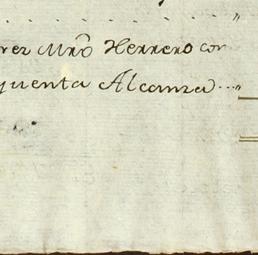 rer Mrõ Herrero con
quenta Alcanza...."